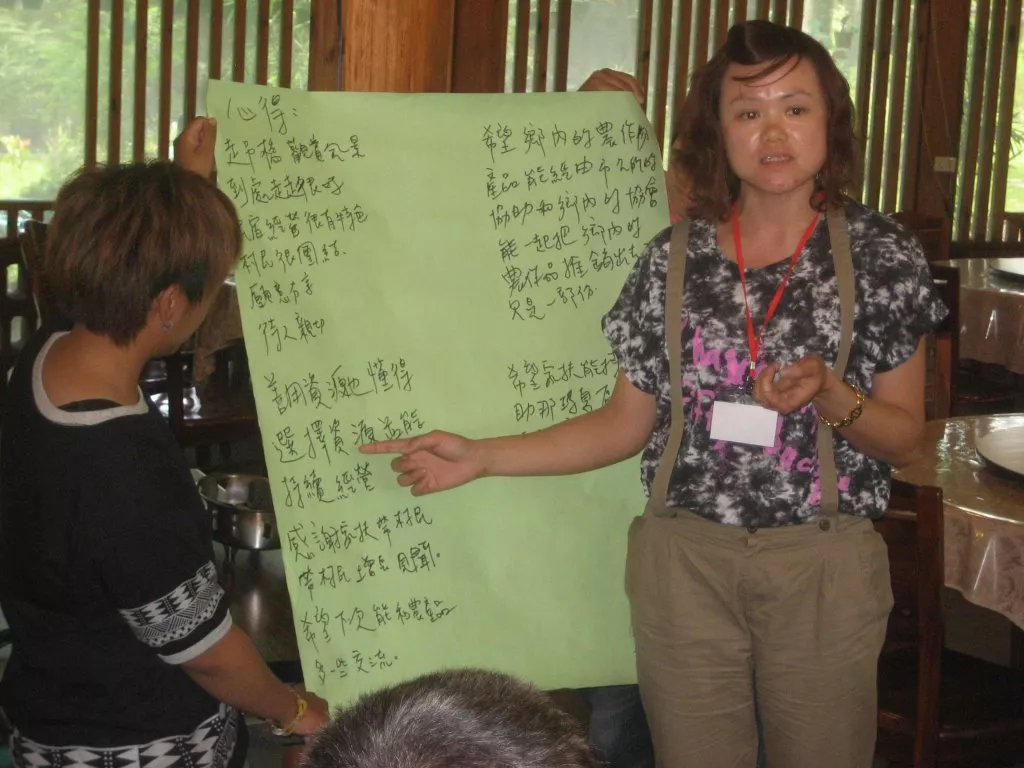 心得:
走吊橋觀賞公是
到處走走很好
民宿經營很有特色
村民很團結
願意分享
待人親切
善用資源也懂得
選擇資源才能
持續經營
感謝家扶帶村民
帶村民增長見聞。
希望下次能和農產品
多一些交流。
希望鄉內的農作物
產品能經由市公所的
協助和鄉內的協會
能一起把鄉內的
農作品推銷出去
只是一部份
希望家扶能
助那瑪夏